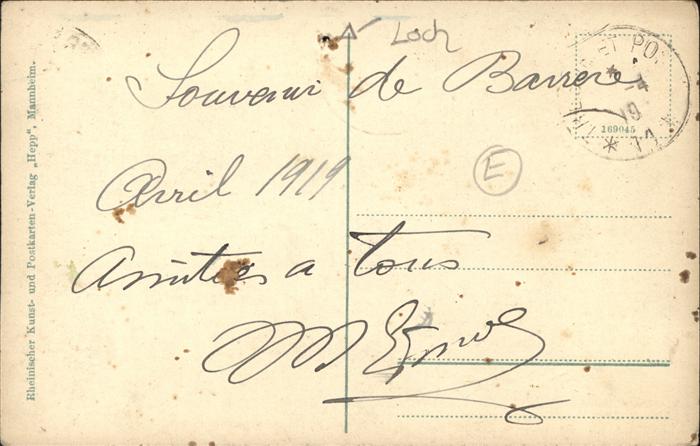 Loch
Souvenir de Barrere
Avril 1919
E
Amitiés a tous
169045
Rheinischer Kunst- und Postkarten-Verlag „Hepp“, Mannheim.